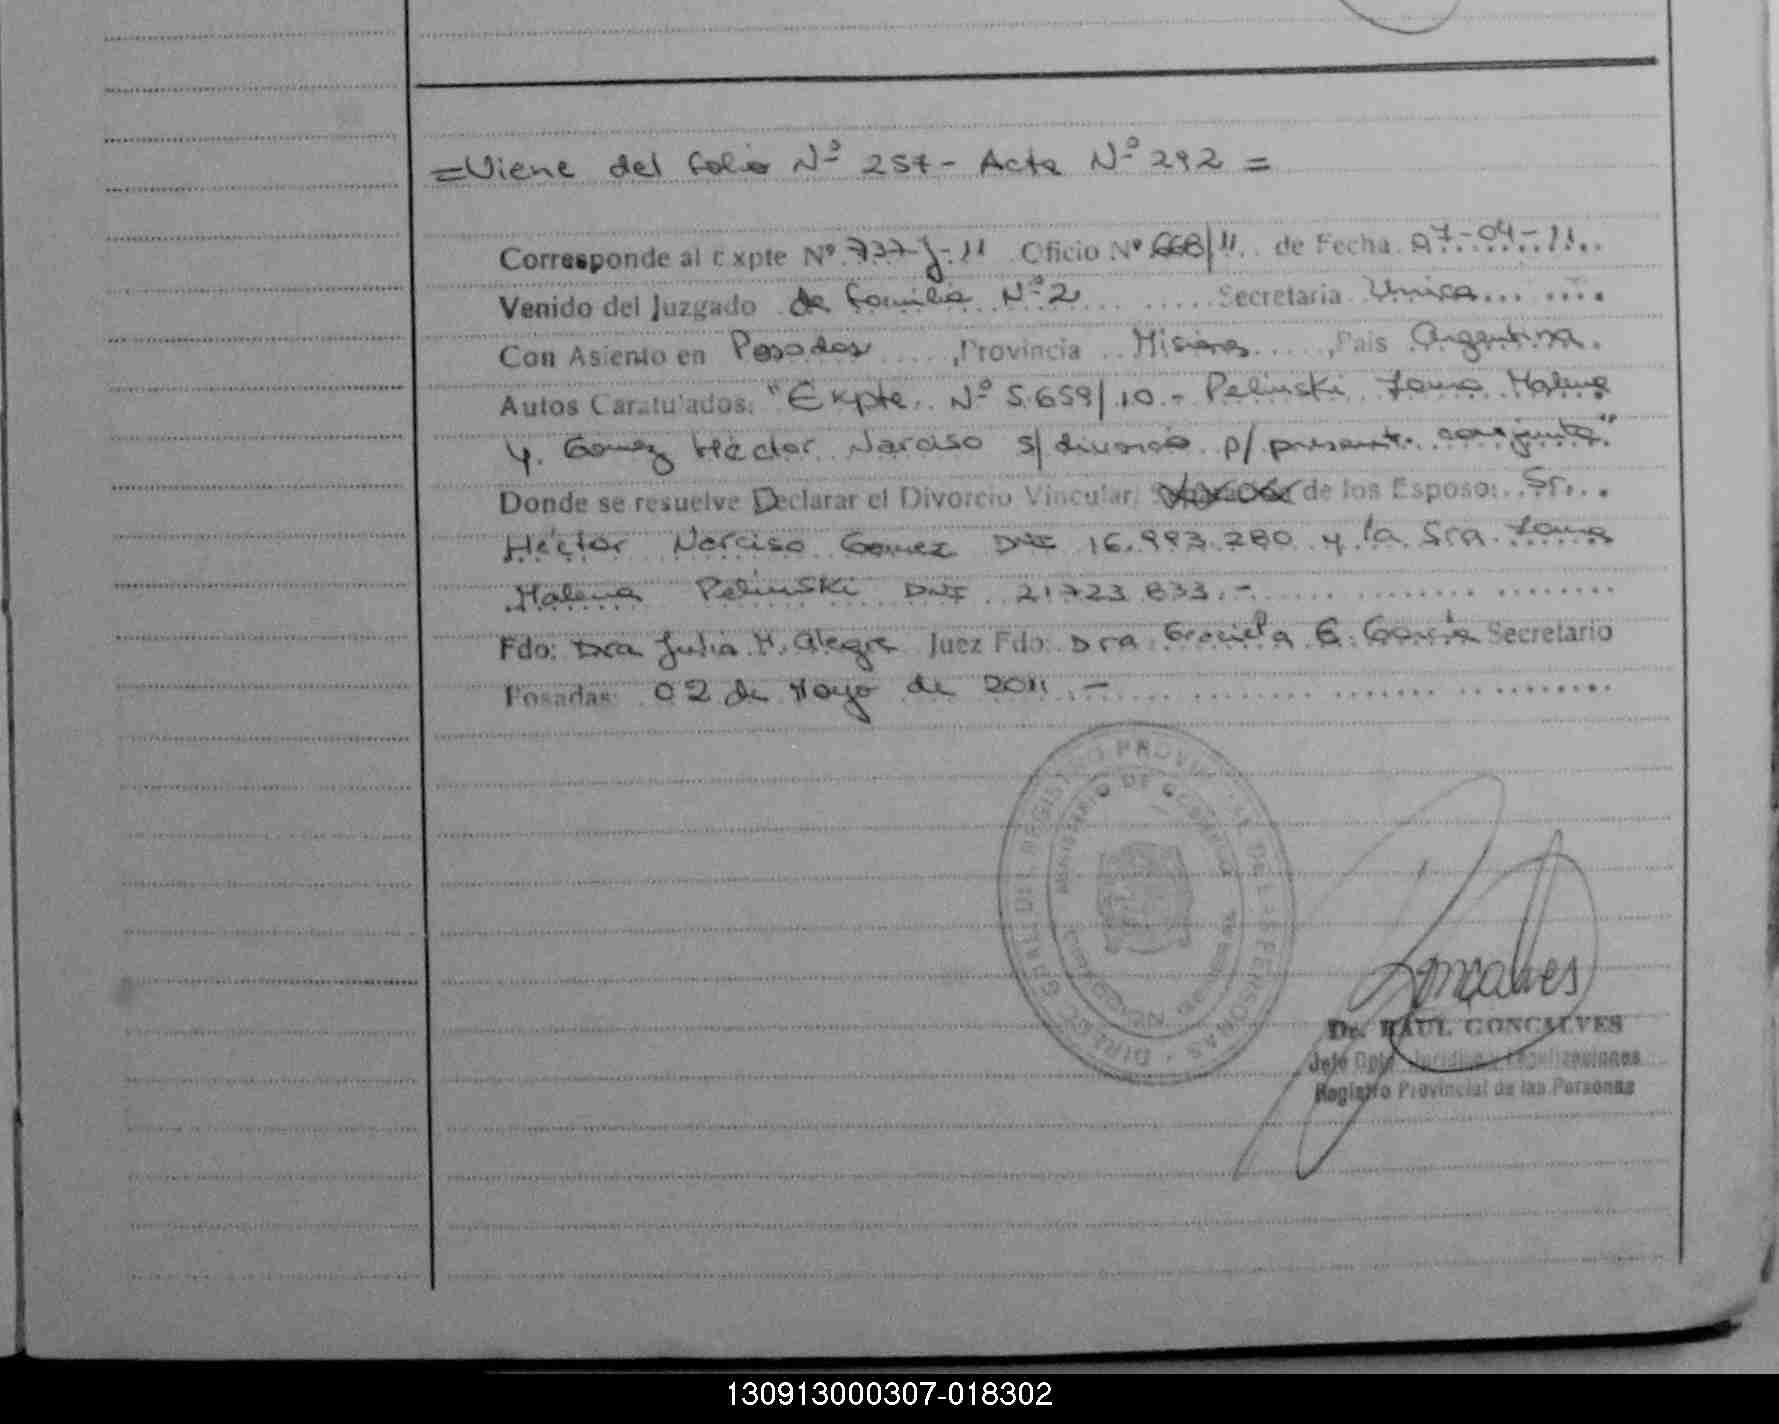 =Viene del folio Nº 257- Acta Nº 292 =
Corresponde al Expte Nº 737-J-11 Oficio Nº 668/11 de Fecha 07-04-11
Venido del Juzgado de familia Nº 2 Secretaria Unica
Con Asiento en Posadas, Provincia Misiones, Pais Argentina.
Autos Caratulados: "Expte. Nº 5.659/10.- Pelinski Malena
y Gomez Héctor Narciso s/ divorcio p/ present. conjunta"
Donde se resuelve Declarar el Divorcio Vincular, de los Esposo: Sr.
Héctor Narciso Gomez DNI 16.993.280 y la Sra.
Malena Pelinski DNI 21.723.833.-
Fdo: Dra Julia H. Alegre Juez Fdo: Dra Graciela G. Garcia Secretario
Posadas: 02 de Mayo de 2011.-
DIREC. GRAL. DEL REGISTRO PROVINCIAL DE LAS PERSONAS
MINISTERIO DE GOBIERNO
Gonçalves
Dr. RAUL GONCALVES
Jefe Dpto. Juridico y Legalizaciones
Registro Provincial de las Personas
130913000307-018302